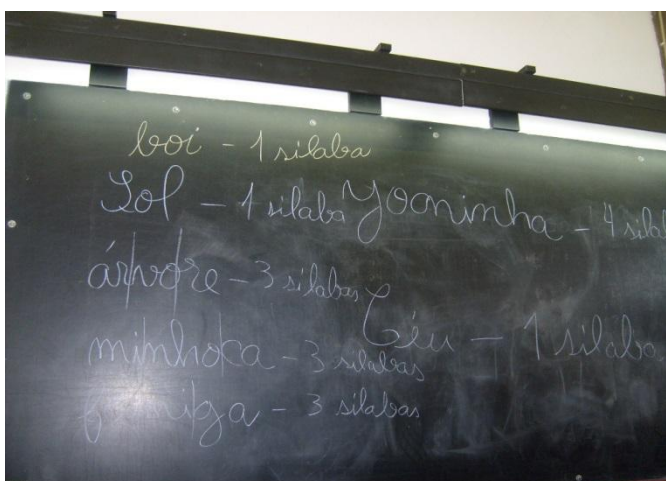 boi - 1 silaba
Sol - 1 silaba
Yoaninha - 4 silab
árvore - 3 silabas
Céu - 1 silaba
minhoca - 3 silabas
formiga - 3 silabas